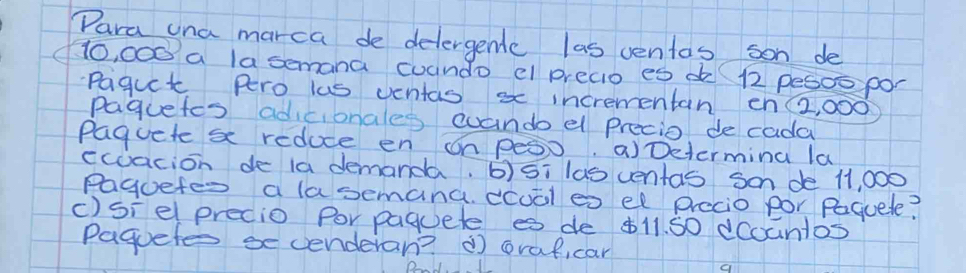 Para una marca de detergente las ventas son de
10,000 a la semana cuando el precio es de 12 pesos por
Paquet Pero las ventas se incrementan en 2,000
Paquetes adicionales cuando el Precio de cada
Paquete se reduce en un peso. a) Determina la
ecuación de la demanda. b) Si las ventas son de 11,000
Paquetes a la semana. ¿cuál es el precio por Paquete?
c) Si el precio Por paquete es de $11.50 ¿Cuántos
Paquetes se venderan? d) Graficar